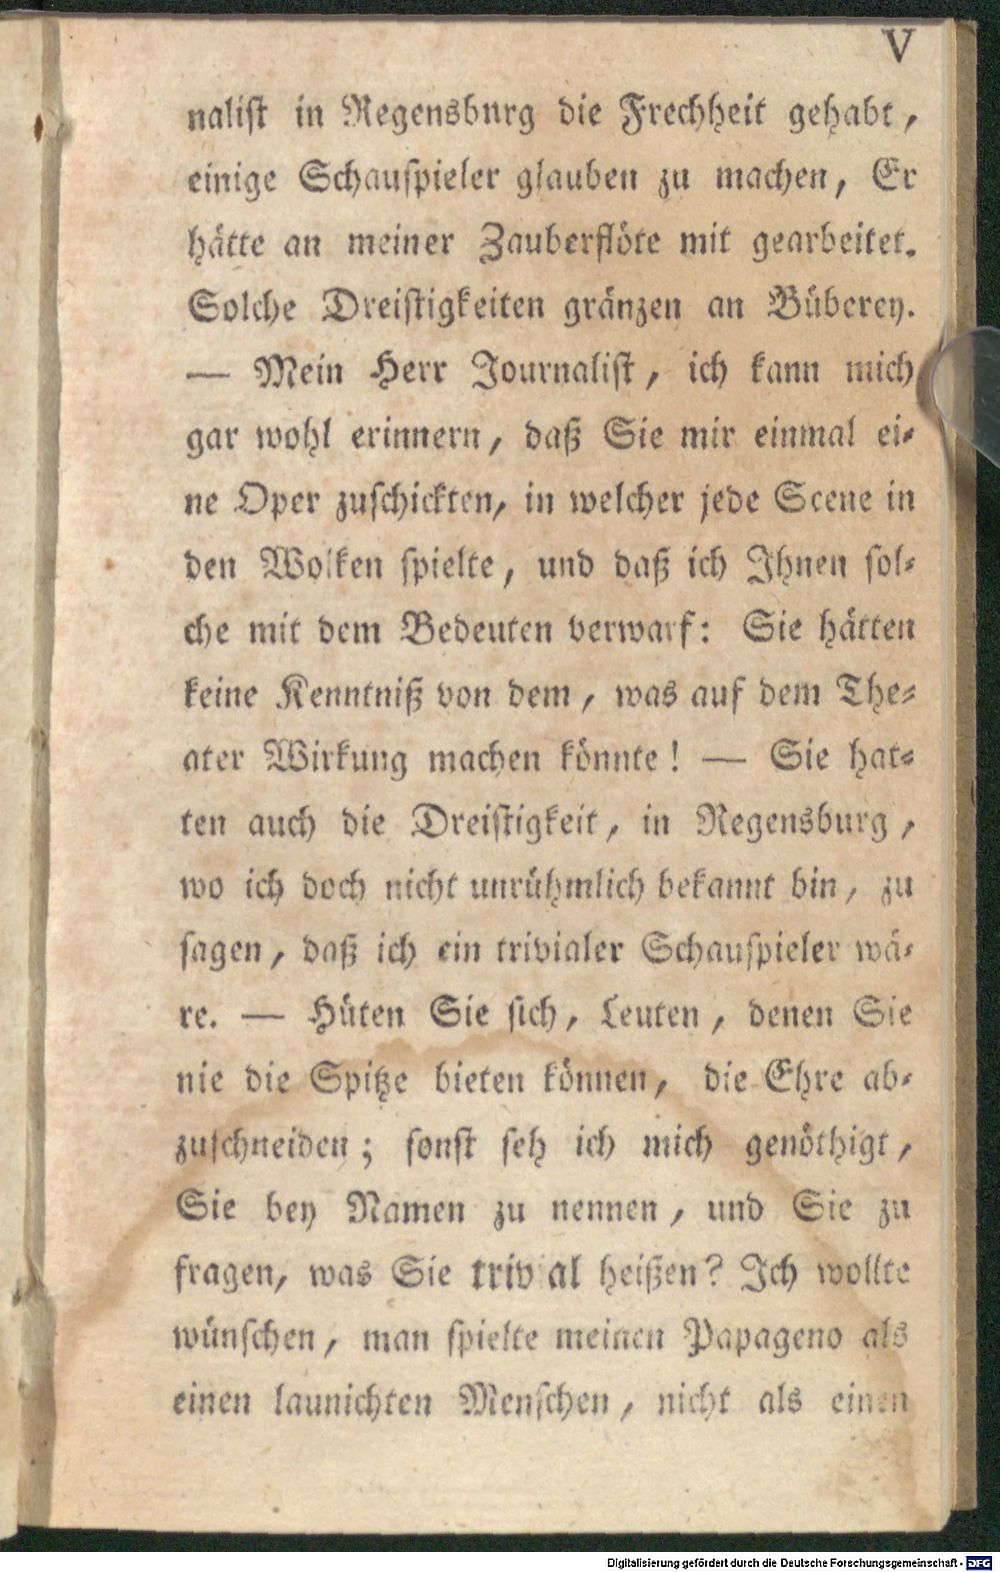 V
naliſt in Regensburg die Frechheit gehabt,
einige Schauſpieler glauben zu machen, Er
hätte an meiner Zauberflöte mit gearbeitet.
Solche Dreiſtigkeiten gränzen an Büberey.
— Mein Herr Journaliſt, ich kann mich
gar wohl erinnern, daß Sie mir einmal ei⸗
ne Oper zuſchickten, in welcher jede Scene in
den Wolken ſpielte, und daß ich Ihnen ſol⸗
che mit dem Bedeuten verwarf: Sie hätten
keine Kenntniß von dem, was auf dem The⸗
ater Wirkung machen könnte! — Sie hat⸗
ten auch die Dreiſtigkeit, in Regensburg,
wo ich doch nicht unrühmlich bekannt bin, zu
ſagen, daß ich ein trivialer Schauſpieler wä⸗
re. — Hüten Sie ſich, Leuten, denen Sie
nie die Spitze bieten können, die Ehre ab⸗
zuſchneiden; ſonſt ſeh ich mich genöthigt,
Sie bey Namen zu nennen, und Sie zu
fragen, was Sie trivial heißen? Ich wollte
wünſchen, man ſpielte meinen Papageno als
einen launichten Menſchen, nicht als einen
Digitalisierung gefördert durch die Deutsche Forschungsgemeinschaft - DFG